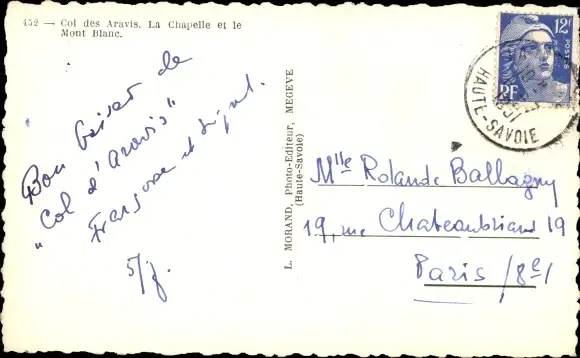 452 — Col des Aravis. La Chapelle et le
Mont Blanc.
12f
POSTES
RF
HAUTE-SAVOIE
1951
Bon baiser de
"Col d'Aravis"
Françoise et
5/8.
L. MORAND, Photo-Editeur, MEGEVE
(Haute-Savoie)
Mlle Rolande Ballagny
19, rue Chateaubriand 19
Paris /8e/